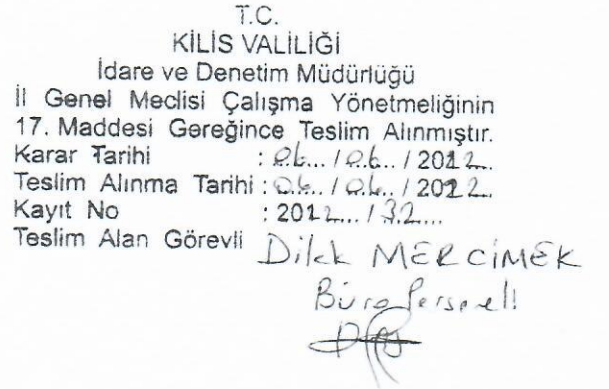 T.C.
KİLİS VALİLİĞİ
İdare ve Denetim Müdürlüğü
İl Genel Meclisi Çalışma Yönetmeliğinin
17. Maddesi Gereğince Teslim Alınmıştır.
Karar Tarihi : 06.../06.../2022.
Teslim Alınma Tarihi : 06.../06.../2022
Kayıt No : 2022.../32...
Teslim Alan Görevli Dilek MERCİMEK
Büro Personeli